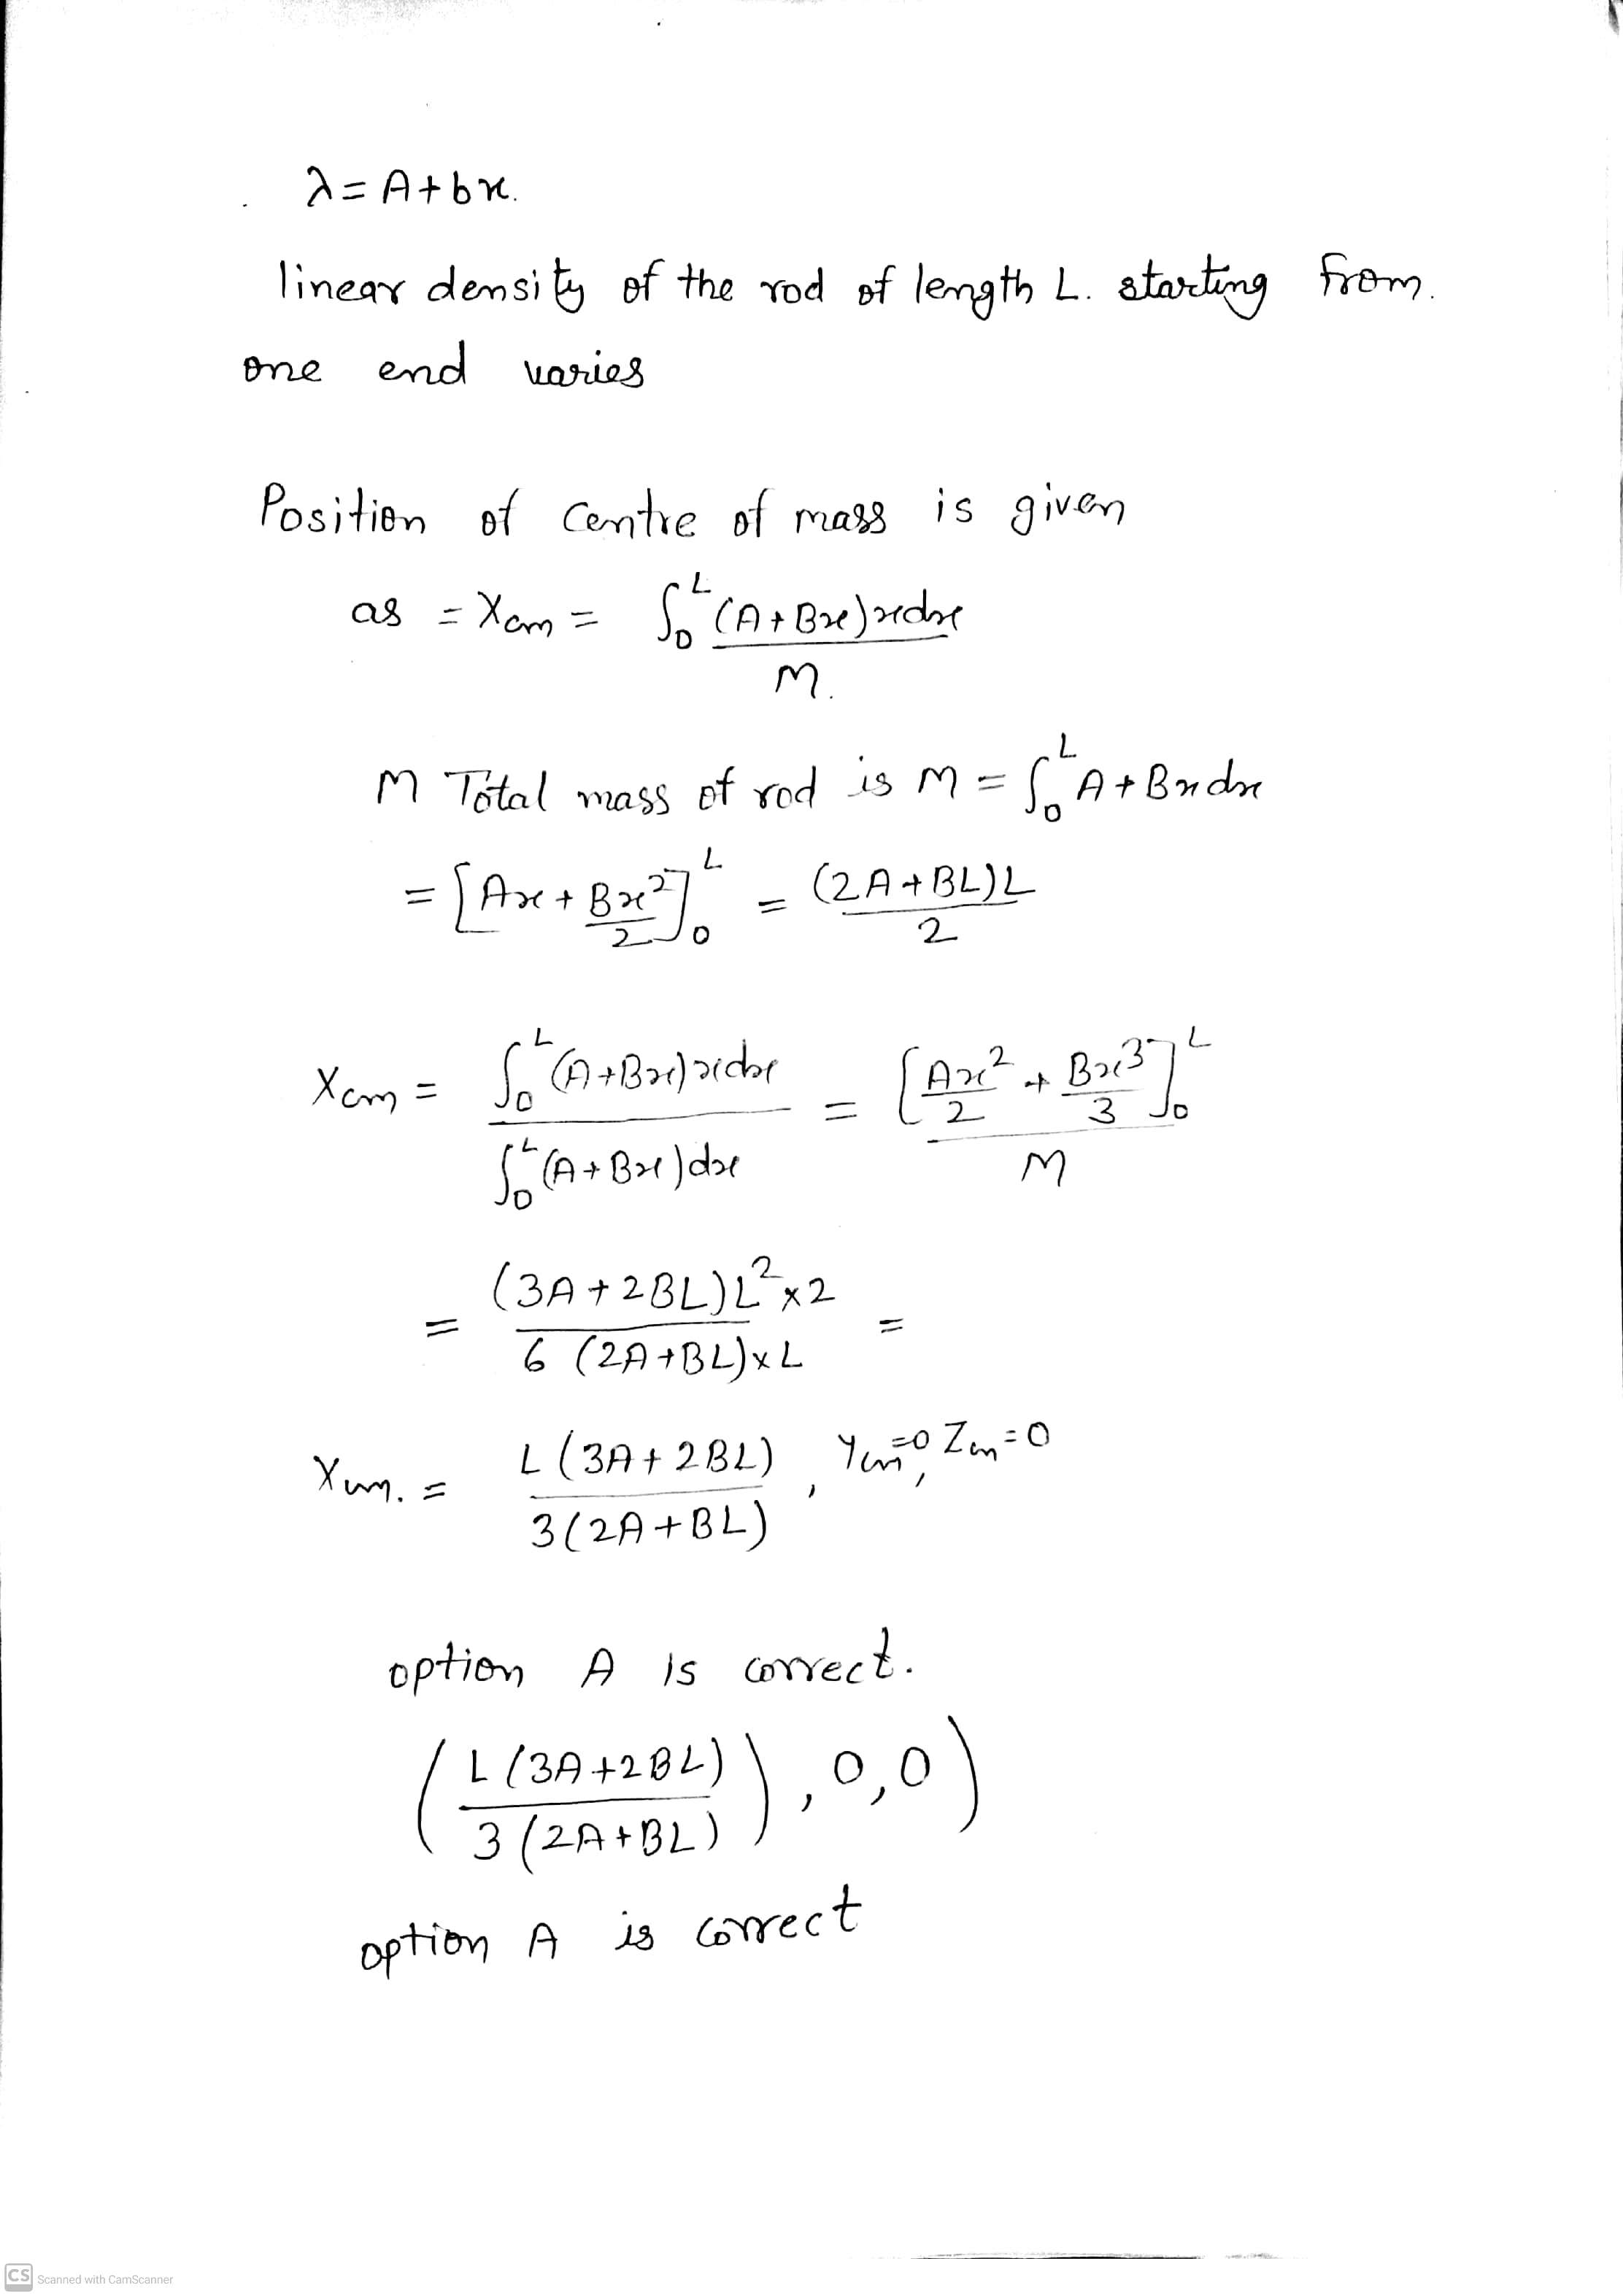 λ = A + bx.
linear density of the rod of length L. starting from.
one end varies
Position of centre of mass is given
as = Xcm = ∫₀ᴸ (A + Bx)xdx / M.
M Total mass of rod is M = ∫₀ᴸ A + Bxdx
= [Ax + Bx²/2]₀ᴸ = (2A + BL)L / 2
Xcm = ∫₀ᴸ (A + Bx)xdx / ∫₀ᴸ (A + Bx)dx = [Ax²/2 + Bx³/3]₀ᴸ / M
= (3A + 2BL)L² × 2 / 6 (2A + BL) × L =
Xcm. = L (3A + 2BL) / 3(2A + BL) , Ycm = 0, Zcm = 0
option A is correct.
( L (3A + 2BL) / 3 (2A + BL) ) , 0, 0 )
option A is correct
CS Scanned with CamScanner